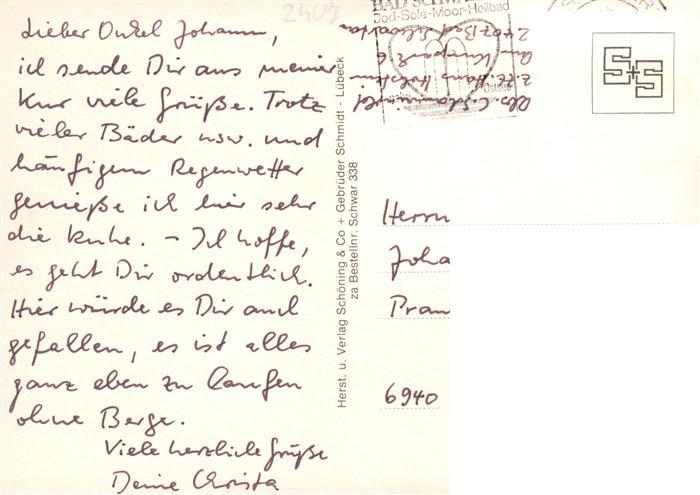 Lieber Onkel Johann,
ich sende Dir aus meiner
Kur viele Grüße. Trotz
vieler Bäder usw. und
häufigem Regenwetter
genieße ich hier sehr
die Ruhe. – Ich hoffe,
es geht Dir ordentlich.
Hier würde es Dir auch
gefallen, es ist alles
ganz eben zu laufen
ohne Berge.
Viele herzliche Grüße
Deine Christa
Herst. u. Verlag Schöning & Co + Gebrüder Schmidt - Lübeck
za Bestellnr. Schwar 338
2407
BAD SCHWA
Jod-Sole-Moor-Heilbad
Ostsee
Abs. C.
z. Zt. Haus Holstein
Am Kurpark 6
2407 Bad Schwartau
S+S
Herrn
Joha
Pran
6940